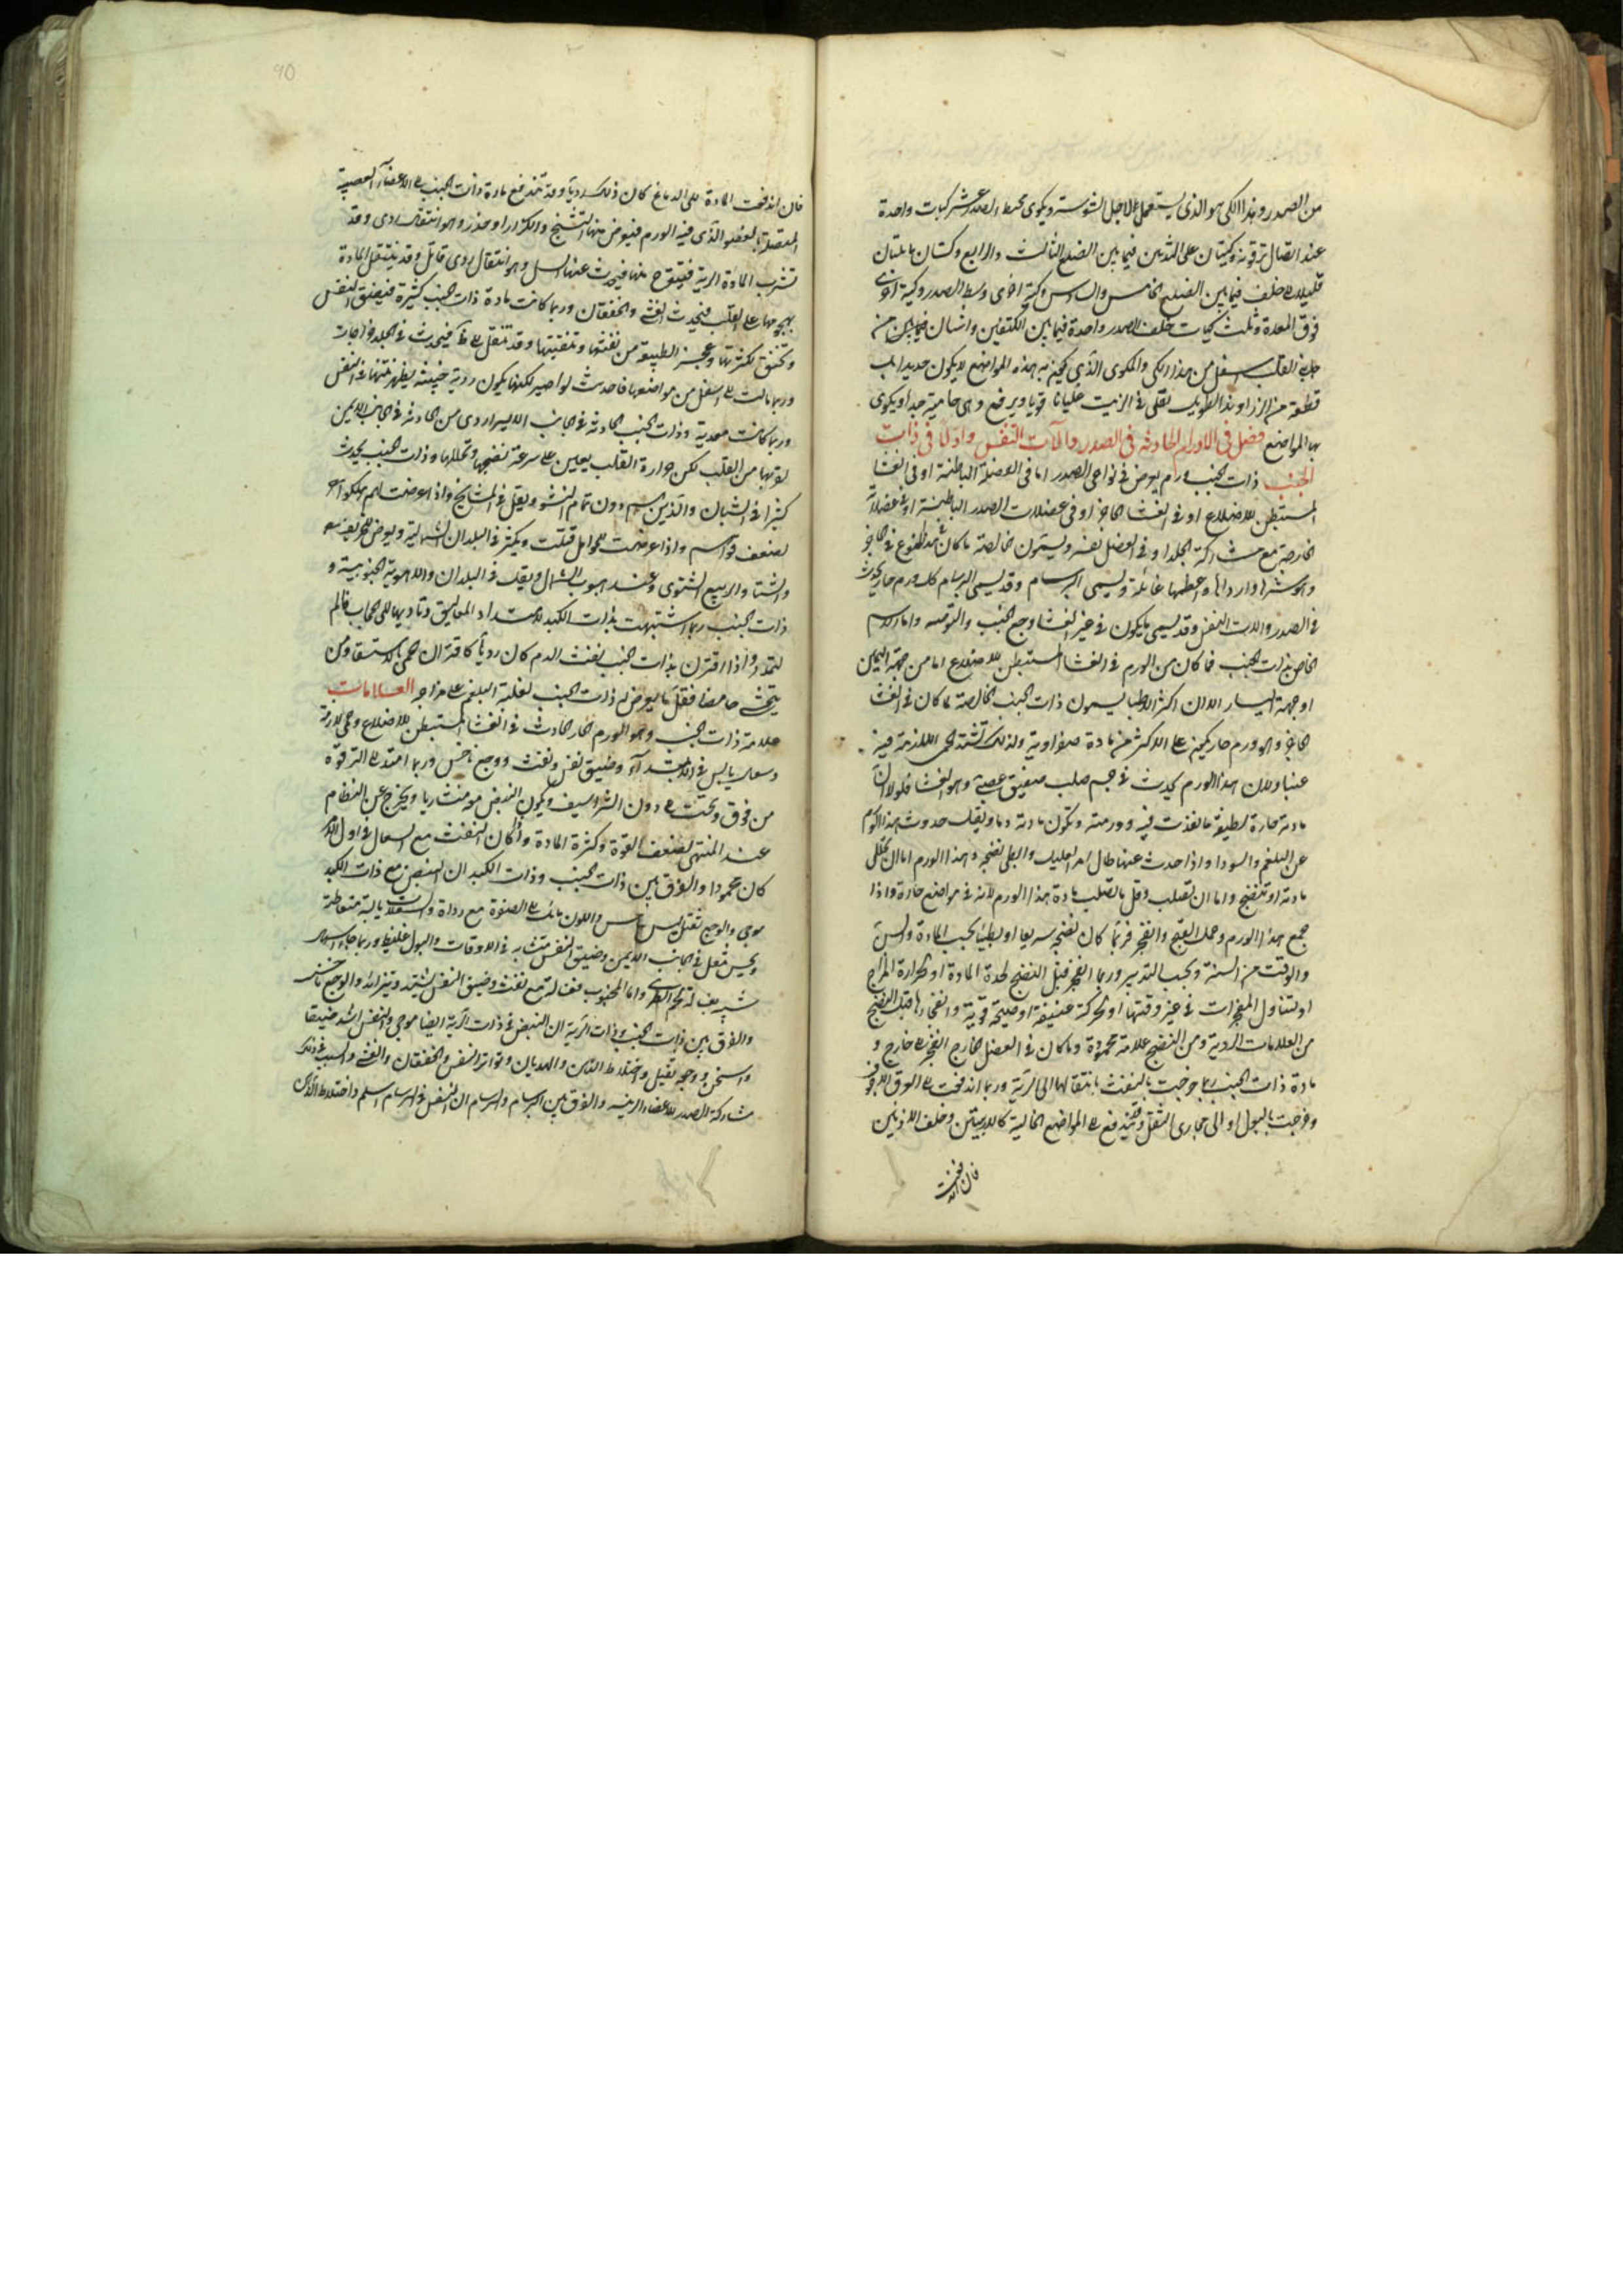 من الصدر وهذا الكي هو الذي يستعمل لاجل الشوسة ويكوى محيط الصدر عشر كيات واحدة
عند اتصال ترقوته وكيتان على الثديين فيما بين الضلع الثالث والرابع وكيتان مايلتان
قليلا الى خلف فيما بين الضلع الخامس والسادس وكية اخرى وسط الصدر وكية اخرى
فوق المعدة وثلث كيات خلف الصدر واحدة فيما بين الكتفين واثنان فيما بين من
جانبي القلب اسفل من هذا الكي والمكوى الذي يكوى به هذه المواضع لا يكون حديدا بل
قطعة من الزراوند الطويل تغلى في الزيت غليانا قويا ويرفع وهي حامية جدا ويكوى
بها المواضع فصل في الاورام الحادثة في الصدر والات التنفس واولا في ذات
الجنب ذات الجنب ورم يعرض في نواحي الصدر اما في العضلة الباطنة او في الغشا
المستبطن للاضلاع او في الغشا الحاجز او في عضلات الصدر الباطنة او في عضلاته
الخارجة مع مشاركة الجلد او في العضل نفسه ويسمون خالصة ما كان في الحاجز
واشرها وارداها واعظمها غائلة ويسمى البرسام وقد يسمى البرسام كل ورم حار يحدث
في الصدر والات التنفس وقد يسمى ما يكون في غير الغشا وجع الجنب والشوصه واما الاسم
الخاص بذات الجنب فما كان من الورم في الغشا المستبطن للاضلاع اما من جهة اليمين
او جهة اليسار الا ان اكثر الاطبا يسمون ذات الجنب الخالصة ما كان في الغشا
الحاجز وهو ورم حار يكون على الاكثر من مادة صفراوية ولذلك تشتد الحمى اللازمة فيه
غبا ولان هذا الورم يحدث في جسم صلب صفيق عصبي وهو الغشا فلولا ان
مادته حارة لطيفة ما نفذت فيه وورمته وتكون مادته دما ويقل حدوث هذا الورم
عن البلغم والسودا واذا حدث عنهما طال امر العليل وابطى نضجه وهذا الورم اما ان يتحلل
مادته او تنضج واما ان تصلب وقل ما تصلب مادة هذا الورم لانه في مواضع حارة واذا
جمع هذا الورم وعمل القيح وانفجر فربما كان نضجه سريعا او بطيئا بحسب المادة والسن
والوقت من السنة وبحسب التدبير وربما انفجر قبل النضج لحدة المادة او لحرارة المزاج
او لتناول المفجرات في غير وقتها او لحركة عنيفة او صيحة قوية وانفجارها قبل النضج
من العلامات الردية ومن النضج علامة محمودة وما كان في العضل الخارج انفجر الى خارج و
مادة ذات الجنب ربما خرجت بالنفث بانتقالها الى الرية وربما اندفعت الى العرق الاجوف
وخرجت بالبول او الى مجارى الثفل وقد تندفع الى المواضع الخالية كالاربيتين وخلف الاذنين
فان اندفعت
90
فان اندفعت المادة الى الدماغ كان ذلك رديا وقد تندفع مادة ذات الجنب الى الاعضاء العصبية
المتصلة بالعضو الذي فيه الورم فيعرض منها التشنج والكزاز او خدر وهو انتقال ردى وقد
تشرب المادة الرية فيتقرح منها فيحدث عنها السل وهو انتقال ردى قاتل وقد ينتقل المادة
بهجومها على القلب فيحدث الغشى والخفقان وربما كانت مادة ذات الجنب كثيرة فيضيق النفس
وتخنق لكثرتها وعجز الطبيعة من نفثها وتنقيتها وقد تنتقل الى فيحدث في الجلد خراجات
وربما مالت الى اسفل من مواضعها فاحدث نواصير لكنها يكون ردية خبيثة يظهر نتنها في النفس
وربما كانت معدية وذات الجنب الحادثة في الجانب الايسر اردى من الحادثة في الجانب الايمن
لقربها من القلب لكن حرارة القلب يعين على سرعة نضجها وتحللها وذات الجنب يحدث
كثيرا في الشبان والذين هم دون تمام النشو ويقل في المشايخ واذا عرضت لهم هلكوا
لضعف قواهم واذا عرضت للحوامل قتلت ويكثر في البلدان الشمالية ويعرض في الخريف
والشتا والربيع الشتوى وعند هبوب الشمال ويقل في البلدان والاهوية الجنوبية و
ذات الجنب ربما اشتبهت بذات الكبد لامتداد المعاليق وتاديها الى الحجاب فالم
لتمدده واذا اقترن بذات الجنب نفث الدم كان رديا كاقتران الحمى بالاستسقا ومن
يتجشى حامضا فقل ما يعرض له ذات الجنب لغلبة البلغم على مزاجه العلامات
علامة ذات الجنب وهو الورم الحار الحادث في الغشا المستبطن للاضلاع وحمى لازمة
وسعال يابس في الابتداء وضيق نفس ونفث ووجع ناخس وربما امتد الى الترقوة
من فوق وتحت الى دون الشراسيف ويكون النبض موتر منشاريا ويخرج عن النظام
عند المنتهى لضعف القوة وكثرة المادة واذا كان النفث مع السعال في اول الامر
كان محمودا والفرق بين ذات الجنب وذات الكبد ان النبض مع ذات الكبد
موجى والوجع ثقيل ليس بناخس واللون مائل الى الصفرة مع رداة والسعلات يابسة متقاطعة
ويحس بثقل في الجانب الايمن وضيق النفس متشابه في الاوقات والبول غليظ وربما جاء اسهال
شبيه بغسالة اللحم الطرى واما المجنوب فسعاله مع نفث وضيق النفس يشتد ويتزايد والوجع ناخس
والفرق بين ذات الجنب وذات الرية ان النبض في ذات الرية ايضا موجى والنفس اشد ضيقا
واسخن ووجعه ثقيل واختلاط الذهن والهذيان وتواتر النفس والخفقان والغشى والسبب في ذلك
مشاركة الصدر للاعضاء الرئيسه والفرق بين البرسام والسرسام ان النفس في السرسام اسلم واختلاط الذهن